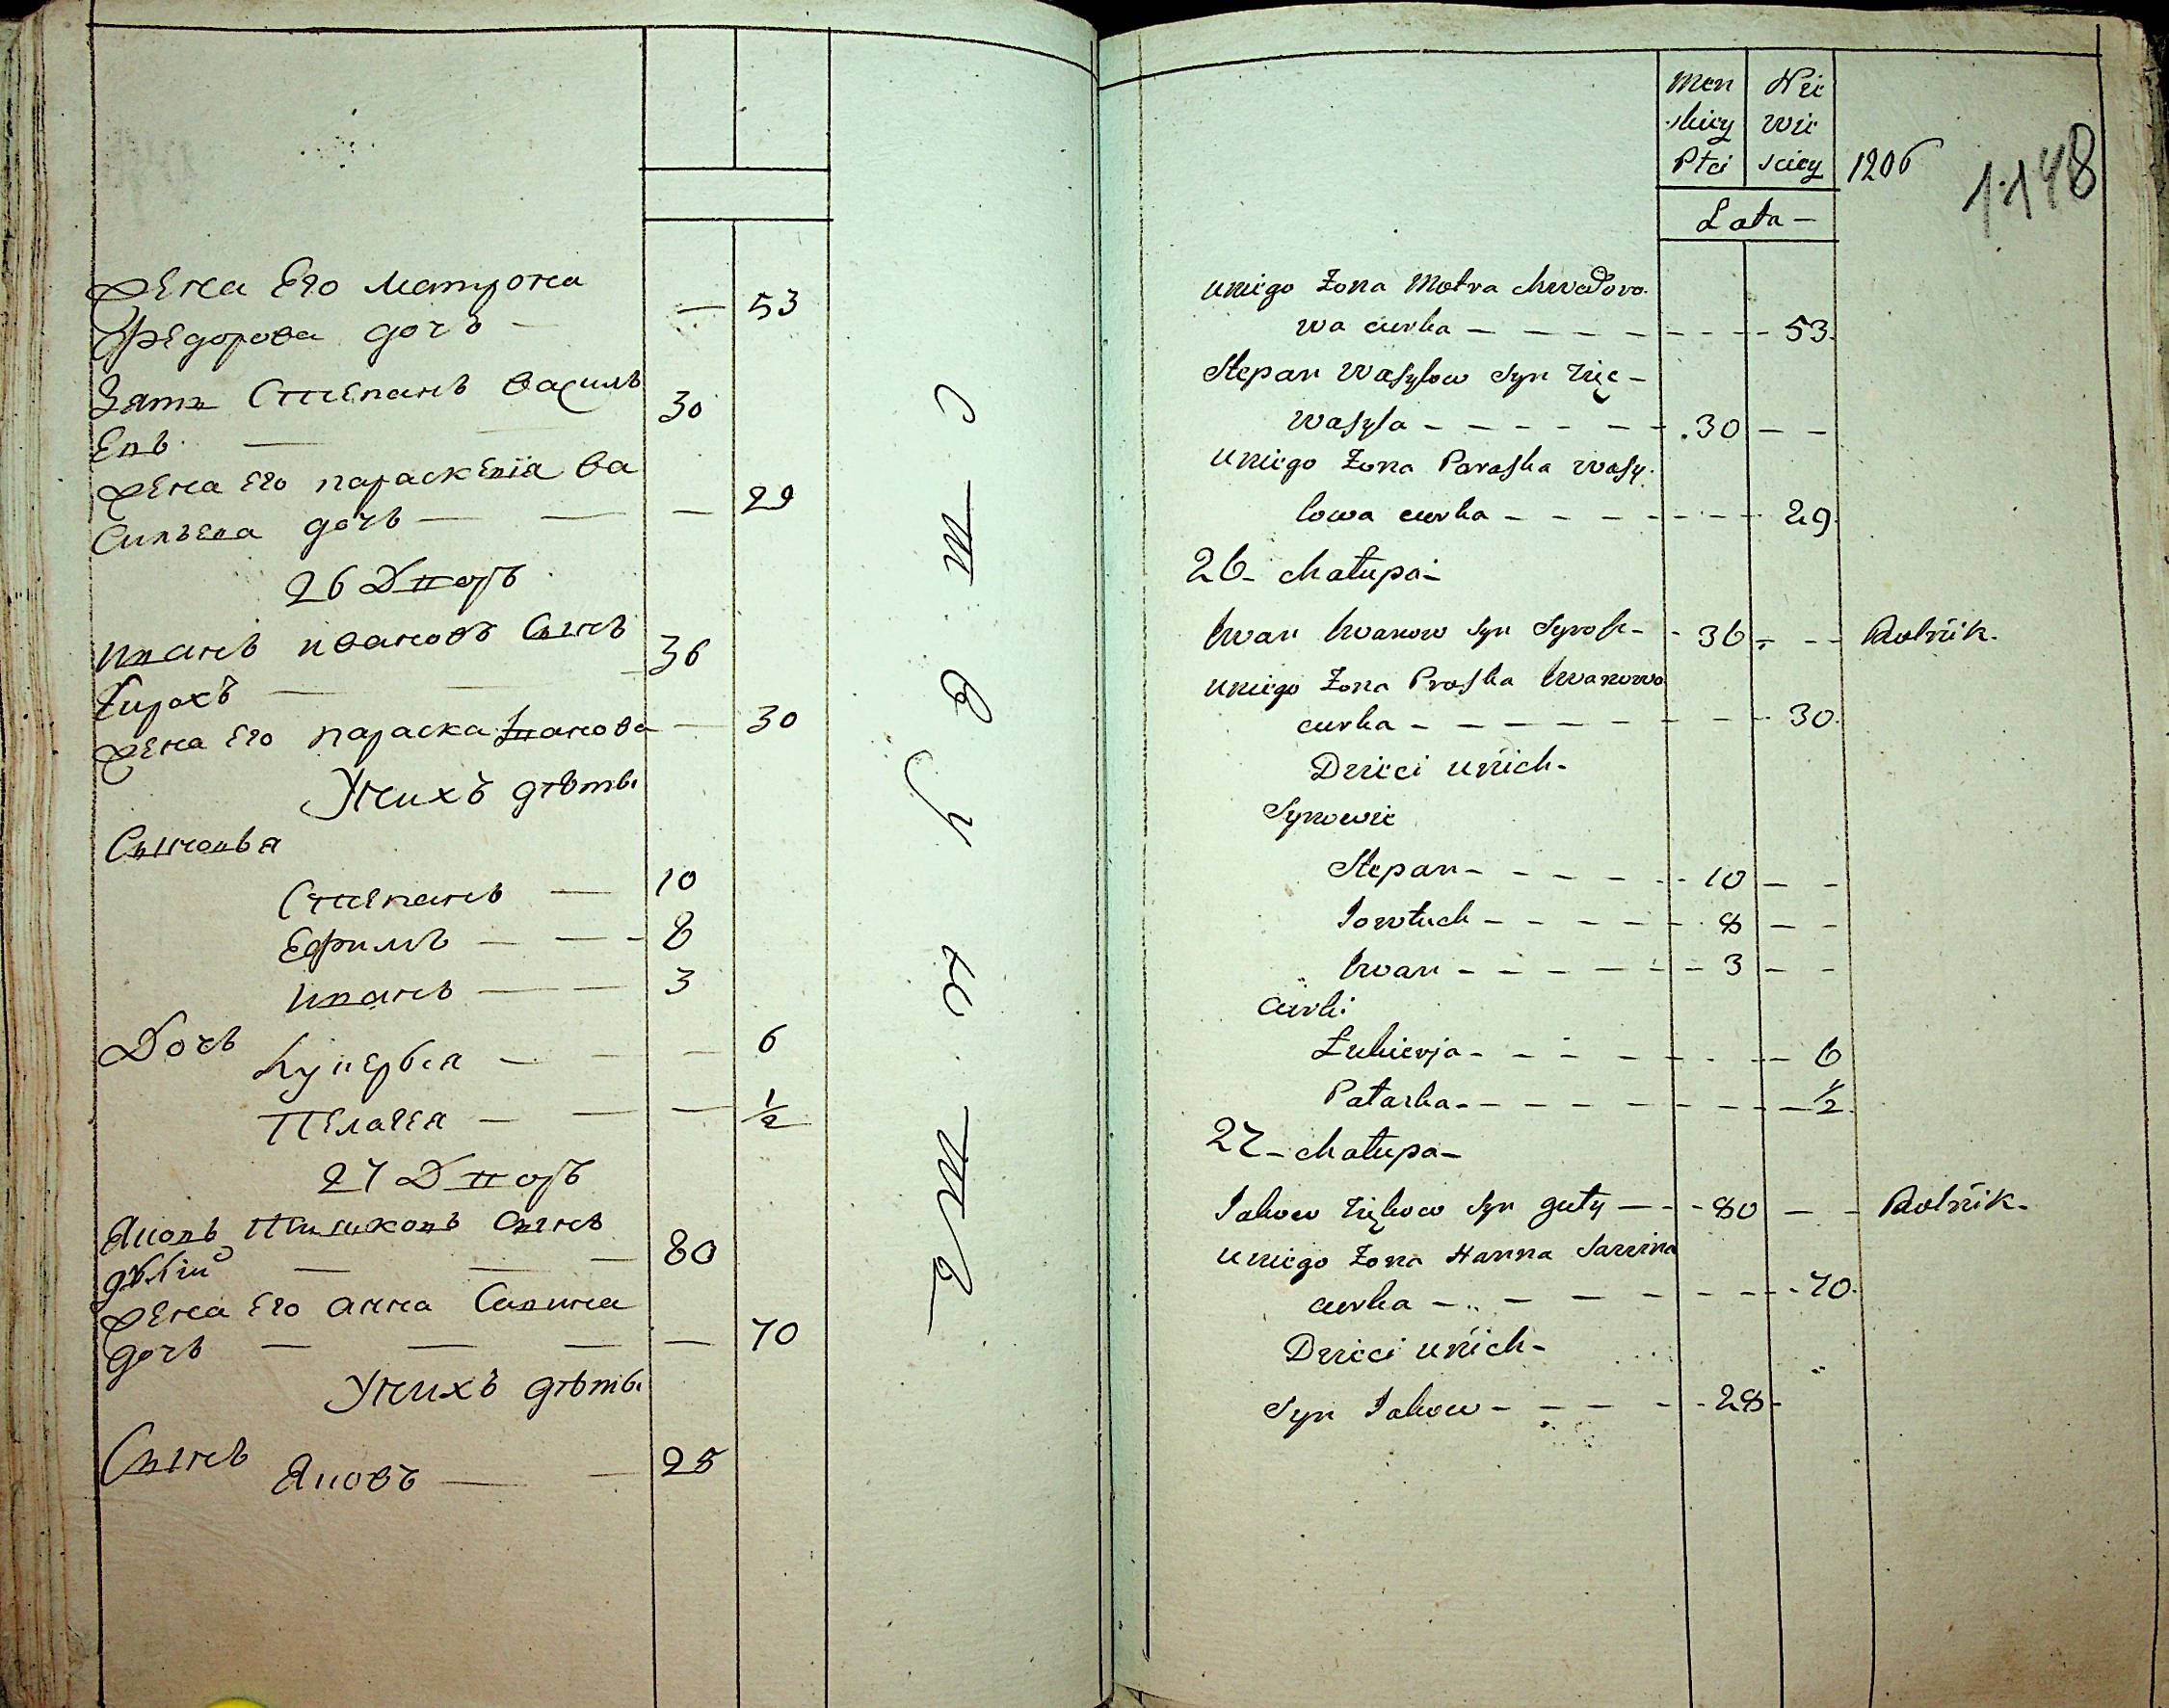 Жена Его Матрона
Федорова дочъ — — 53
Зятъ Степанъ Василь
Евъ — 30
Жена Его параскевіа Ва
Сильева дочъ — — — 29
26 Дворъ
Иванъ ивановъ Сынъ
— — 36
Жена Его параска Іванова — 30
У нихъ дѣты
Сыновья
Степанъ — 10
Ефимъ — — - 8
Иванъ — — 3
Дочъ
Лукерья — — — 6
Пелагея — — — 1/2
27 Дворъ
Яковъ Сынъ
— — — 80
Жена Его анна Савина
дочъ — — — — 70
У нихъ дѣты
Сынъ
Яковъ — — 28
Men Nie
skiey wie
Płci sciey 1206
1148
Lata —
u niego Żona Motra Chwedoro-
wa curka — — — — 53.
Stepan Wasylow Syn Zięć -
Wasyla — — — — 30 — —
u niego Żona Paraska Wasy-
lowa curka — — — — 29.
26 - Chałupa -
Iwan Iwanow Syn - 36 - - - Rolnik.
u niego Żona Praska Iwanowa
curka — — — — 30.
Dzieci u nich -
Synowie
Stepan - - - - - 10 - -
Jowtuch - - - - - 8 - -
Iwan - - - - - 3 - -
Curki
Łukierja - - - - - 6
Pałazka - - - - - 1/2.
27 - Chałupa -
Jakow Syn — - 80 - - Rolnik.
u niego Żona Hanna Sawina
curka — — — — 70.
Dzieci u nich -
Syn Jakow - - - - 28 -